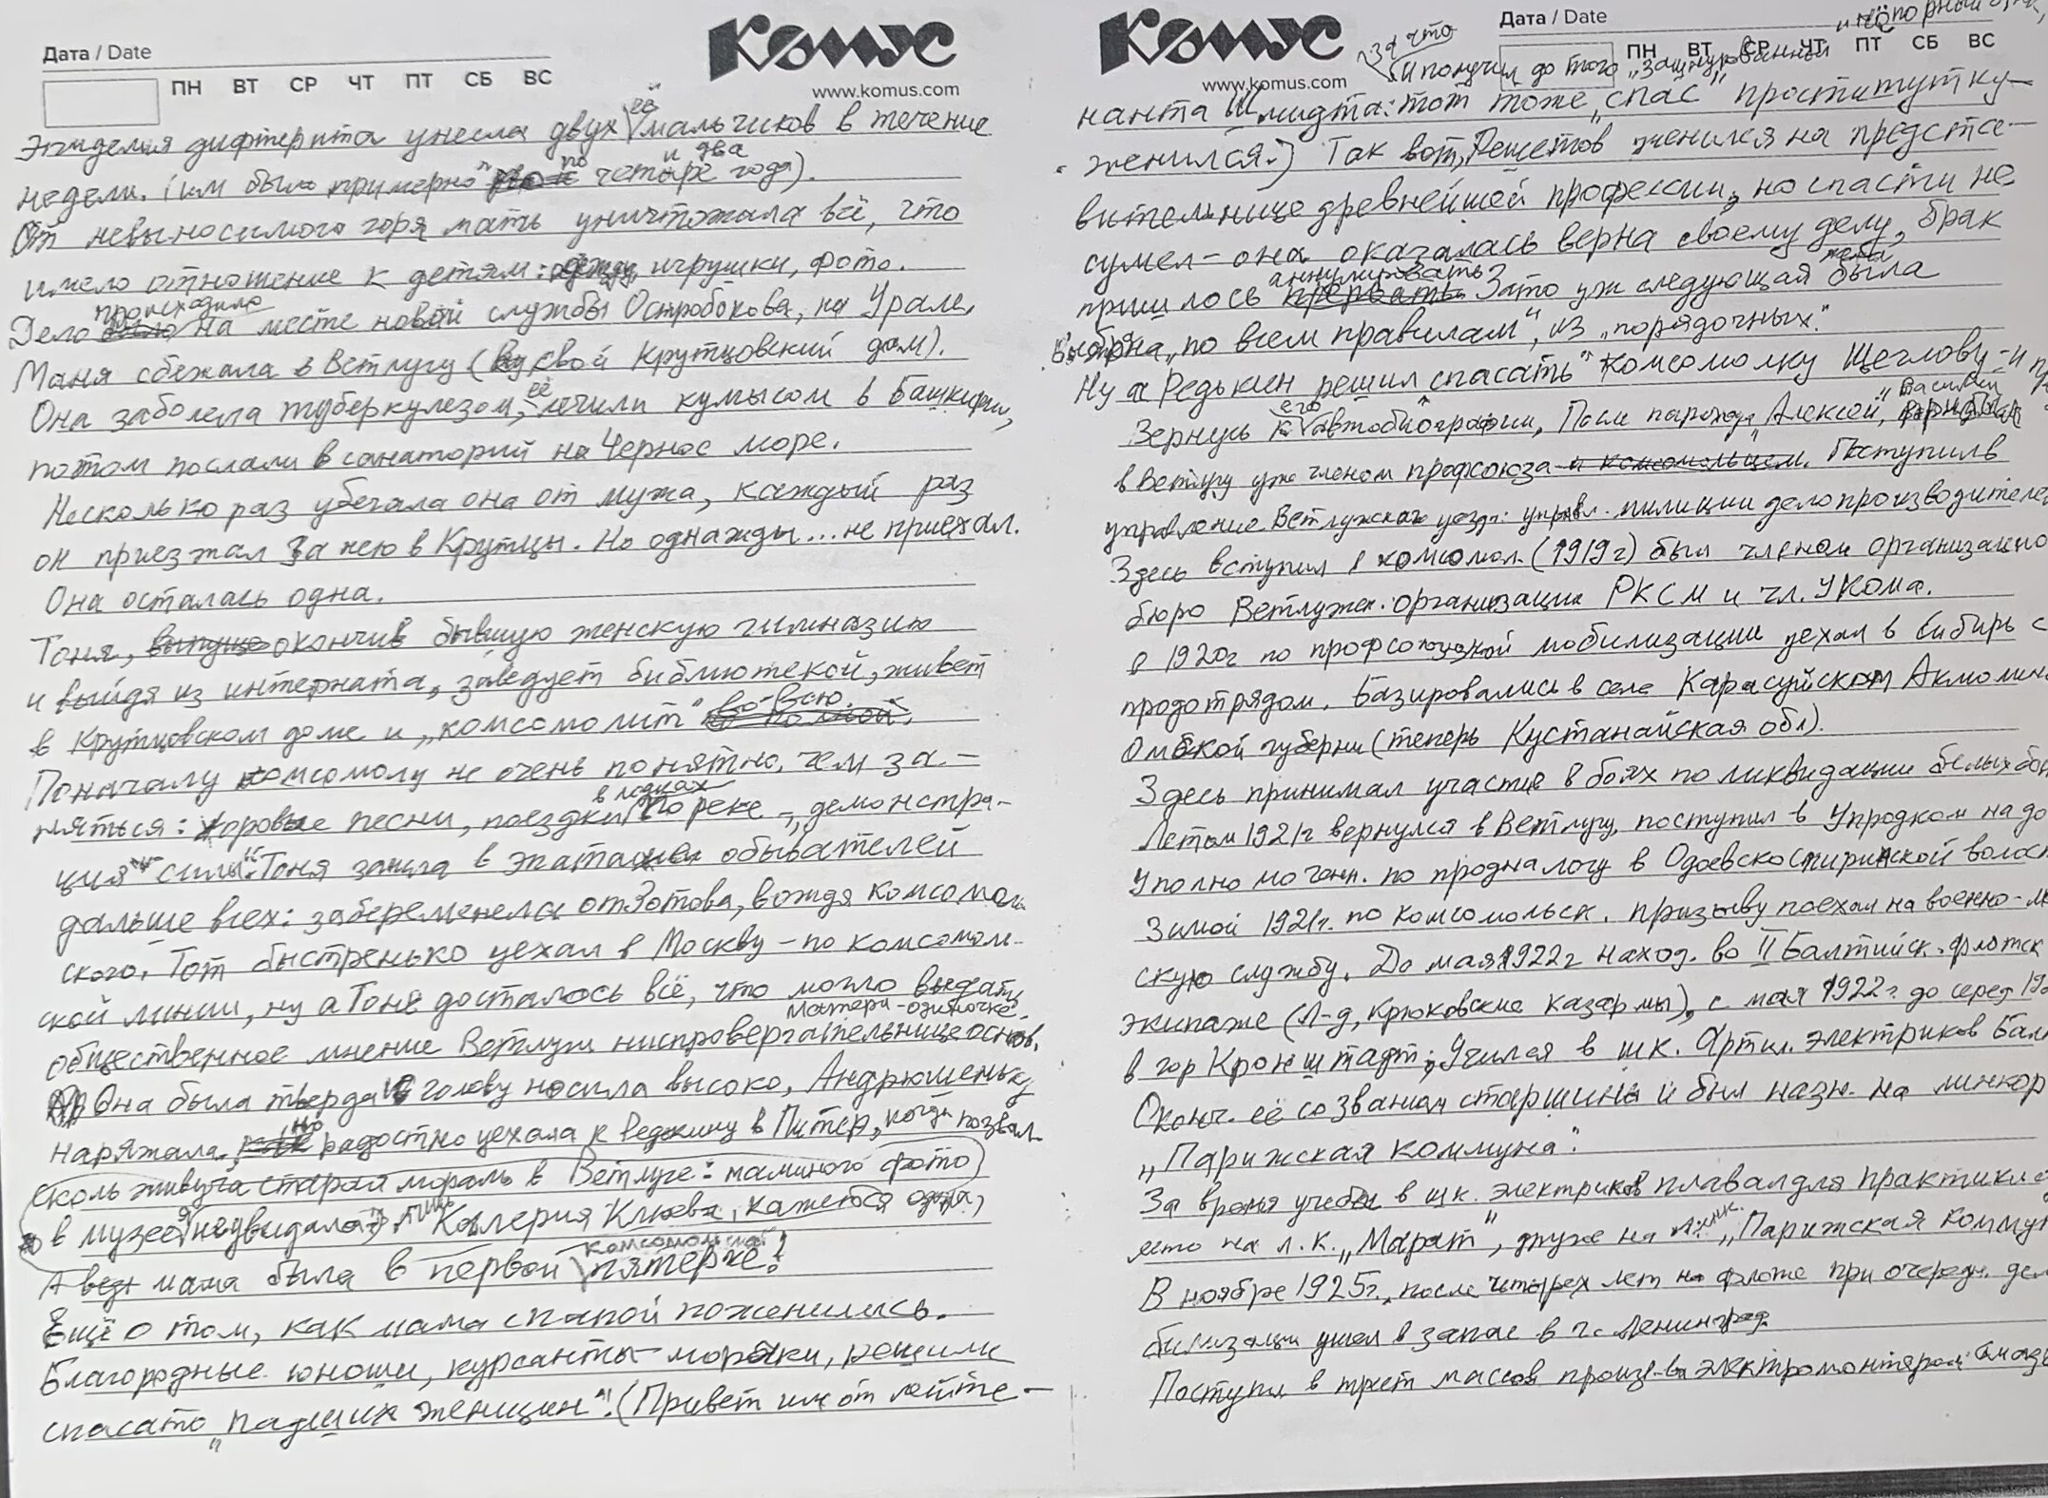 Дата / Date
ПН ВТ СР ЧТ ПТ СБ ВС
Комус
www.komus.com
Эпидемия дифтерита унесла двух её мальчиков в течение
недели. (им было примерно по четыре и два года).
От невыносимого горя мать уничтожала всё, что
имело отношение к детям: одежду, игрушки, фото.
Дело происходило на месте новой службы Остробокова, на Урале.
Маня сбежала в Ветлугу (в свой Крутцовский дом).
Она заболела туберкулезом, её лечили кумысом в Башкирии,
потом послали в санаторий на Черное море.
Несколько раз убегала она от мужа, каждый раз
он приезжал за нею в Крутцы. Но однажды... не приехал.
Она осталась одна.
Тоня, окончив бывшую женскую гимназию
и выйдя из интерната, заведует библиотекой, живет
в Крутцовском доме и „комсомолит" во-всю.
Поначалу комсомолу не очень понятно, чем за-
няться: хоровые песни, поездки в лодках по реке, демонстра-
ция „силы". Тоня зашла в эпатаже обывателей
дальше всех: забеременела от Зотова, вождя комсомоль
ского. Тот быстренько уехал в Москву – по комсомоль-
ской линии, ну а Тоне досталось всё, что могло выдать
общественное мнение Ветлуги матери-одиночке ниспровергательнице основ.
Она была тверда и голову носила высоко, Андрюшеньку
наряжала, но радостно уехала к Редькину в Питер, когда позвал.
Сколь живуча старая мораль в Ветлуге: маминого фото
в музее я не увидала, лишь Калерия Клюева, кажется одна,
А ведь мама была в первой комсомольской пятерке!
Ещё о том, как мама с папой поженились.
Благородные юноши, курсанты-моряки, решили
спасать „падших женщин". (Привет им от лейте-
Комус
www.komus.com
Дата / Date
ПН ВТ СР ЧТ ПТ СБ ВС
За что
и получил до того „зашнурованный
нанта Шмидта: тот тоже „спас" проститутку –
женился.) Так вот, Решетов женился на предста-
вительнице древнейшей профессии, но спасти не
сумел – она оказалась верна своему делу, брак
пришлось аннулировать. Зато уж следующая жена была
выбрана „по всем правилам", из „порядочных".
Ну а Редькин решил „спасать" комсомолку Щеглову – и
Вернусь к его автобиографии. После парохода „Алексей", „Василий
в Ветлугу уже членом профсоюза и комсомольцем. Поступил в
управление Ветлужског уезд. управл. милиции делопроизводителем
Здесь вступил в комсомол. (1919г) был членом организацио
бюро Ветлужск. организации РКСМ и чл. УКома.
В 1920г по профсоюзной мобилизации уехал в Сибирь с
продотрядом. Базировались в селе Карасуйском Акмолинс
Омской губернии (теперь Кустанайская обл).
Здесь принимал участие в боях по ликвидации белых бан
Летом 1921г вернулся в Ветлугу, поступил в Упродком на до
Уполномочен. по продналогу в Одоевско Спиринской волост
Зимой 1921г. по комсомольск. призыву поехал на военно-мо
скую службу. До мая 1922г наход. во II Балтийск. флотск
экипаже (Л-д, Крюковские казармы), с мая 1922г. до серед 19
в гор Кронштадт, Учился в шк. Артил. электриков Балт
Оконч. её со званием старшины и был назн. на линкор
„Парижская коммуна".
За время учебы в шк. электриков плавал для практики о
лето на л.к. „Марат", другие на линк. „Парижская коммун
В ноябре 1925г., после четырех лет на флоте при очередн. дем
билизации ушел в запас в г. Ленинград
Поступил в трест массов произв-ва электромонтером